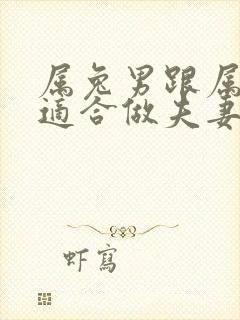 属兔男跟属
适合做夫妻
虾写